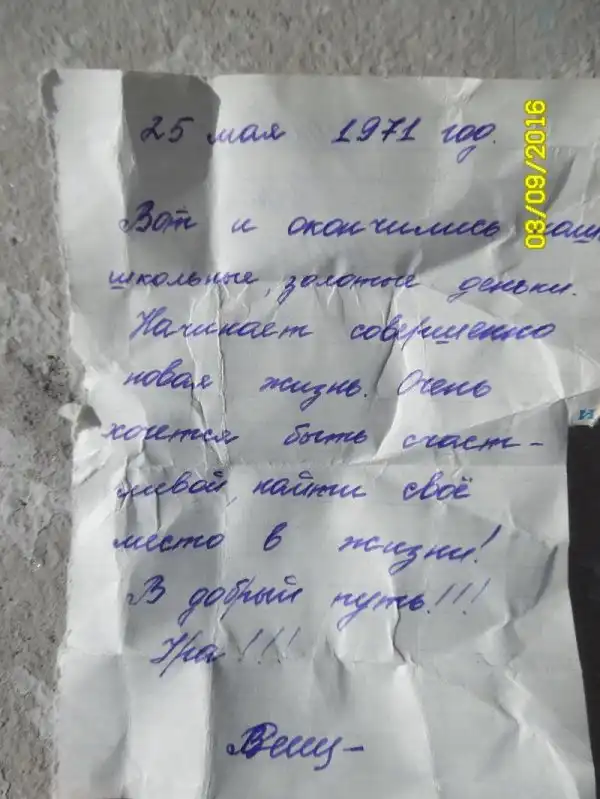 25 мая 1971 год.
03/09/2016
Вот и окончились наши
школьные, золотые деньки.
Начинает совершенно
новая жизнь. Очень
хочется быть счаст-
ливой, найти своё
место в жизни!
В добрый путь!!!
Ура!!!